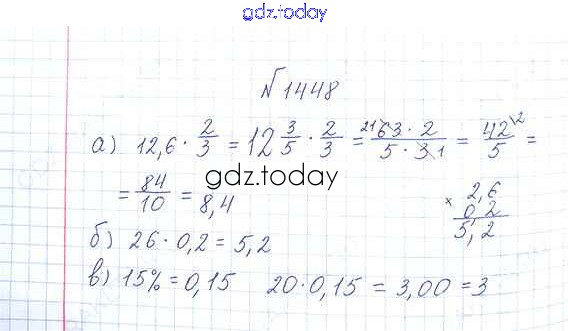 gdz.today
№1448
а) 12,6 · 2/3 = 12 3/5 · 2/3 = 21 63 · 2 / 5 · 3 1 = 42 \2 / 5 =
= 84/10 = 8,4
gdz.today
× 2,6
0,2
5,2
б) 26 · 0,2 = 5,2
в) 15% = 0,15 20 · 0,15 = 3,00 = 3